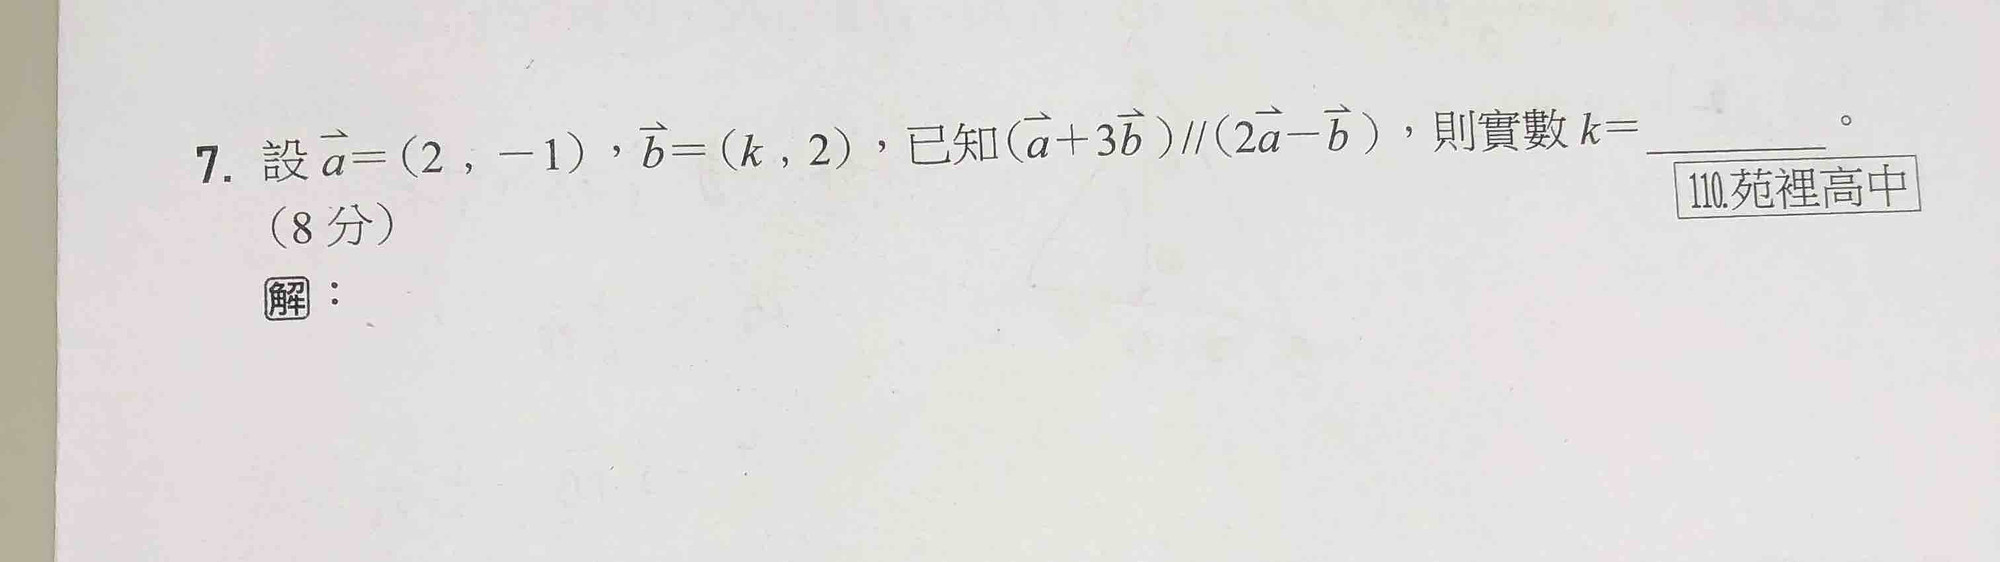 7. 設 a⃗=(2,-1),b⃗=(k,2),已知(a⃗+3b⃗)//(2a⃗-b⃗),則實數 k=______。
110.苑裡高中
(8 分)
解: